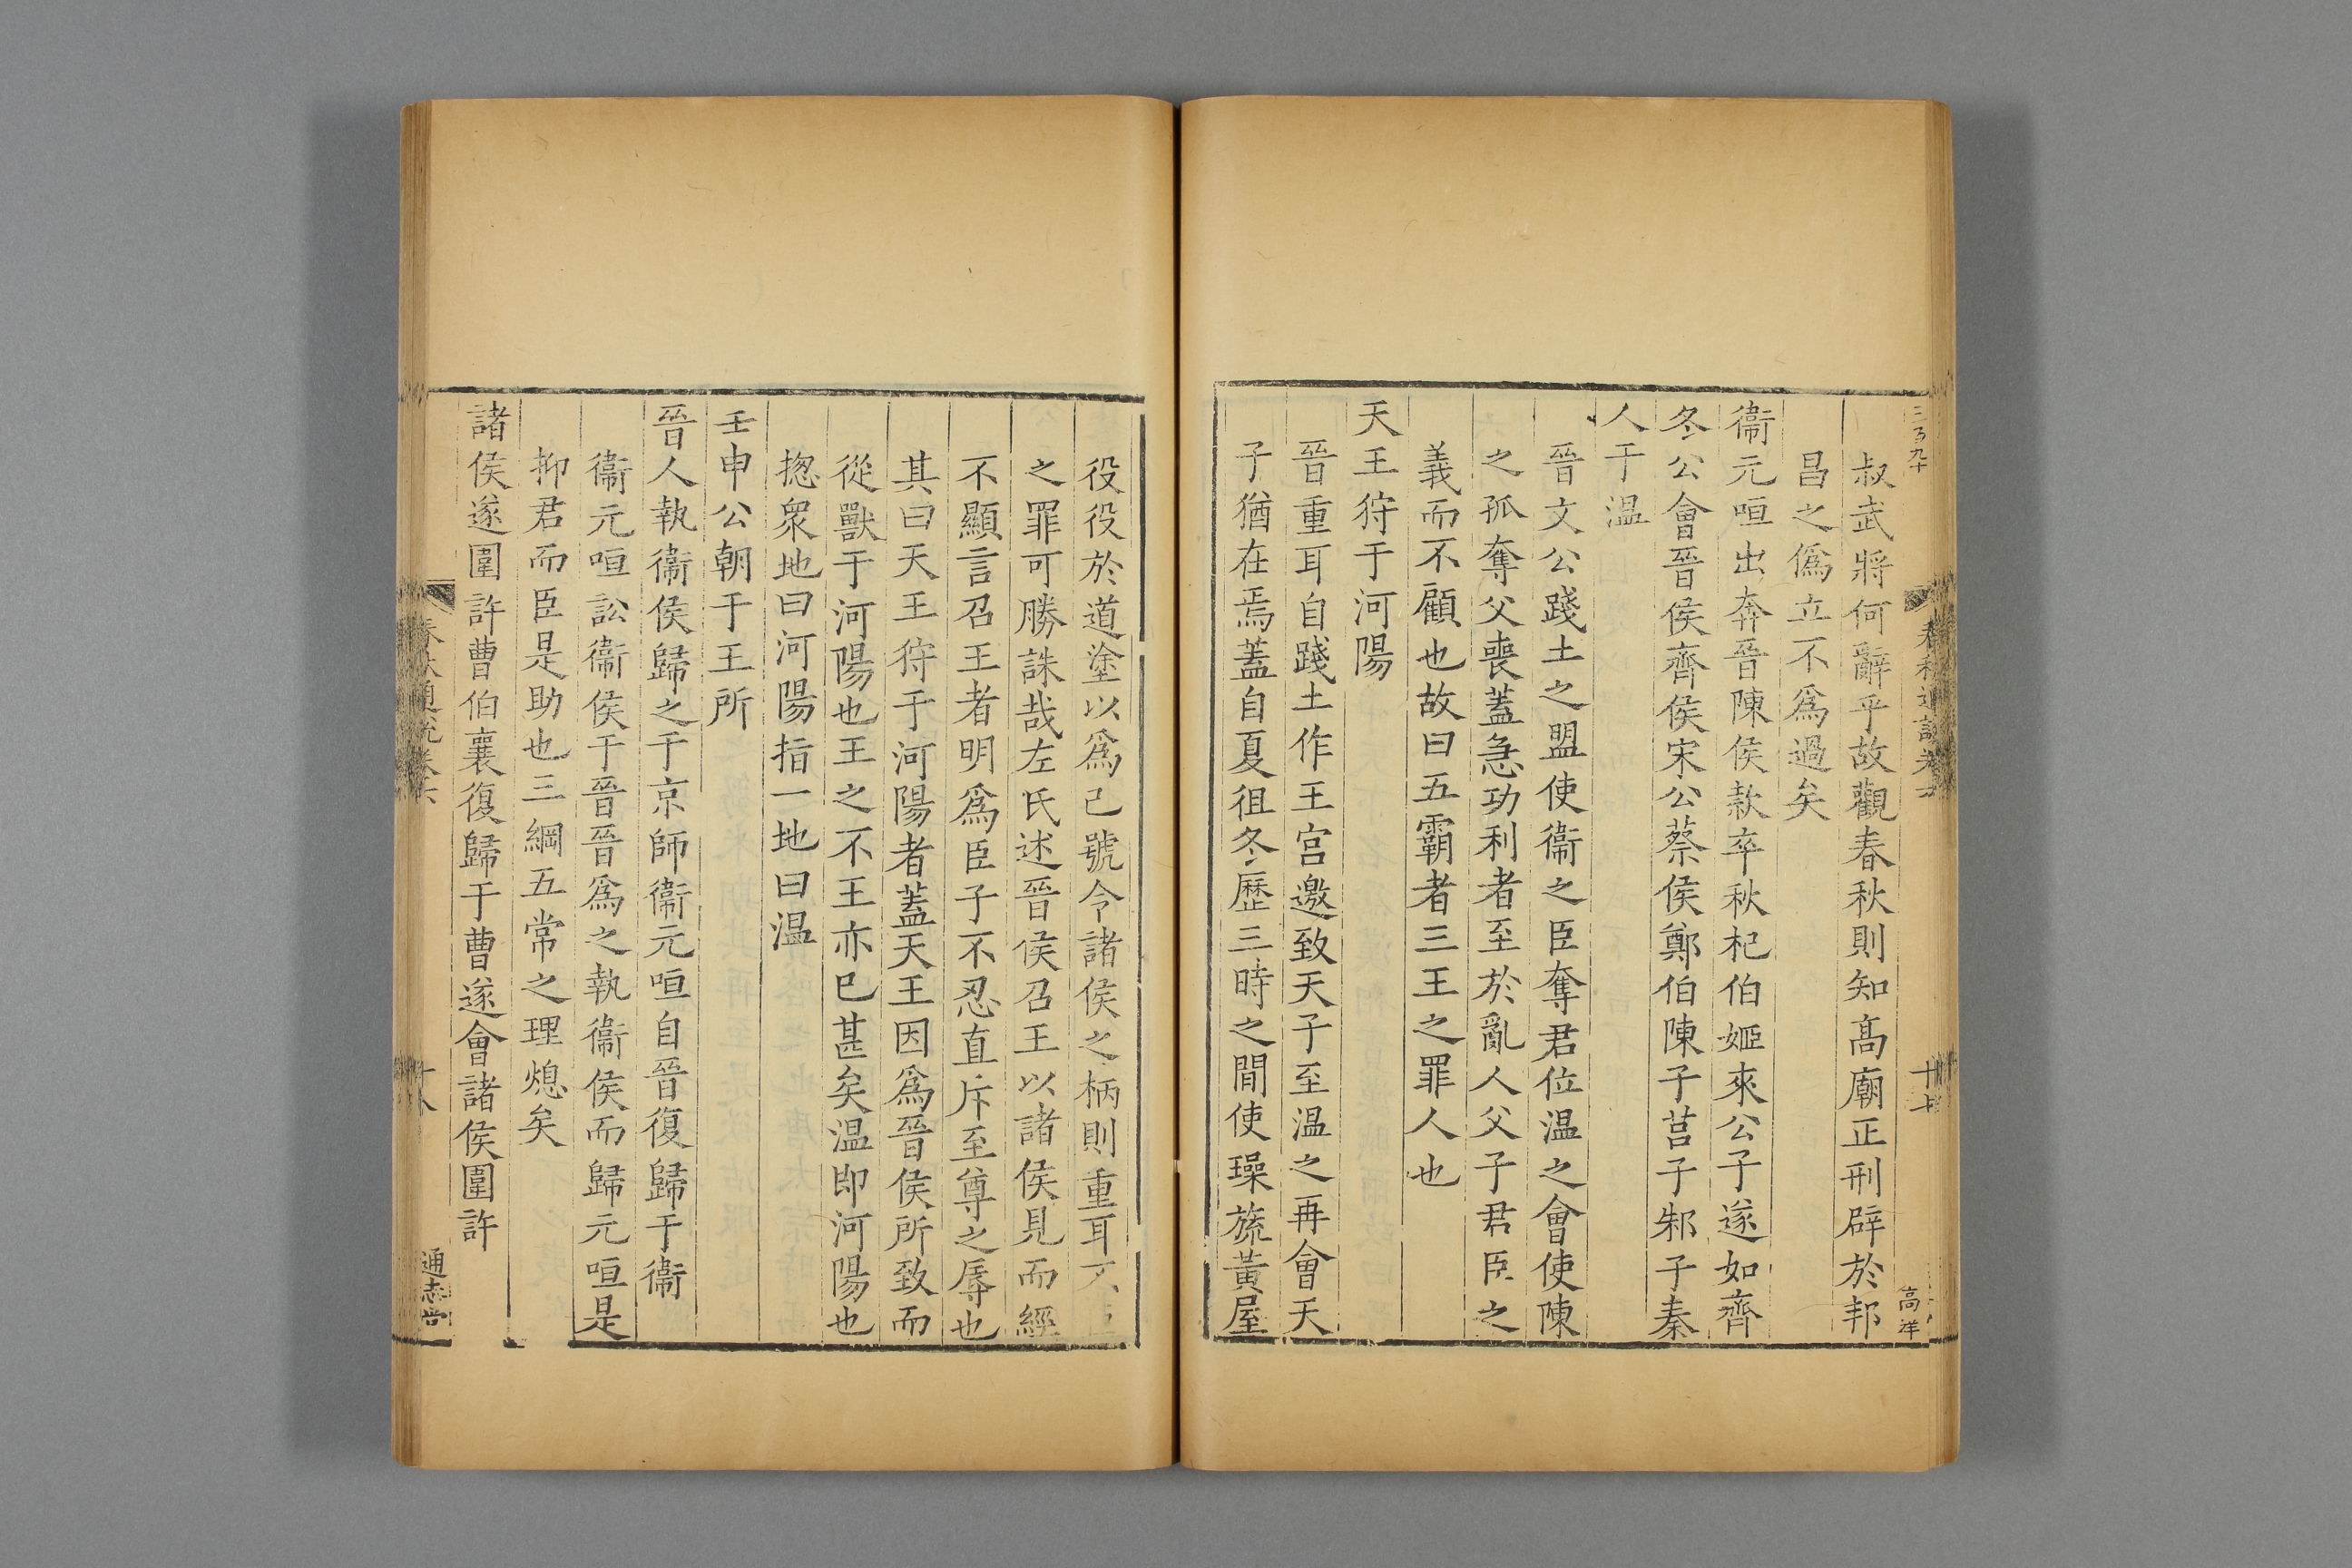 三百九十
叔武將何辭乎故觀春秋則知高廟正刑辟於邦
昌之僞立不爲過矣
衞元咺出奔晉陳侯款卒秋杞伯姬來公子遂如齊
冬公會晉侯齊侯宋公蔡侯鄭伯陳子莒子邾子秦
人于温
晉文公踐土之盟使衞之臣奪君位温之會使陳
之孤奪父喪蓋急功利者至於亂人父子君臣之
義而不顧也故曰五霸者三王之罪人也
天王狩于河陽
晉重耳自踐土作王宫邀致天子至温之再會天
子猶在焉蓋自夏徂冬歷三時之間使璪旒黃屋
十七
高洋
役役於道塗以爲己號令諸侯之柄則重耳
之罪可勝誅哉左氏述晉侯召王以諸侯見而經
不顯言召王者明爲臣子不忍直斥至尊之辱也
其曰天王狩于河陽者蓋天王因爲晉侯所致而
從獸于河陽也王之不王亦已甚矣温即河陽也
揔衆地曰河陽指一地曰温
壬申公朝于王所
晉人執衞侯歸之于京師衞元咺自晉復歸于衞
衞元咺訟衞侯于晉晉爲之執衞侯而歸元咺是
抑君而臣是助也三綱五常之理熄矣
諸侯遂圍許曹伯襄復歸于曹遂會諸侯圍許
春秋通說卷六
十八
通志堂